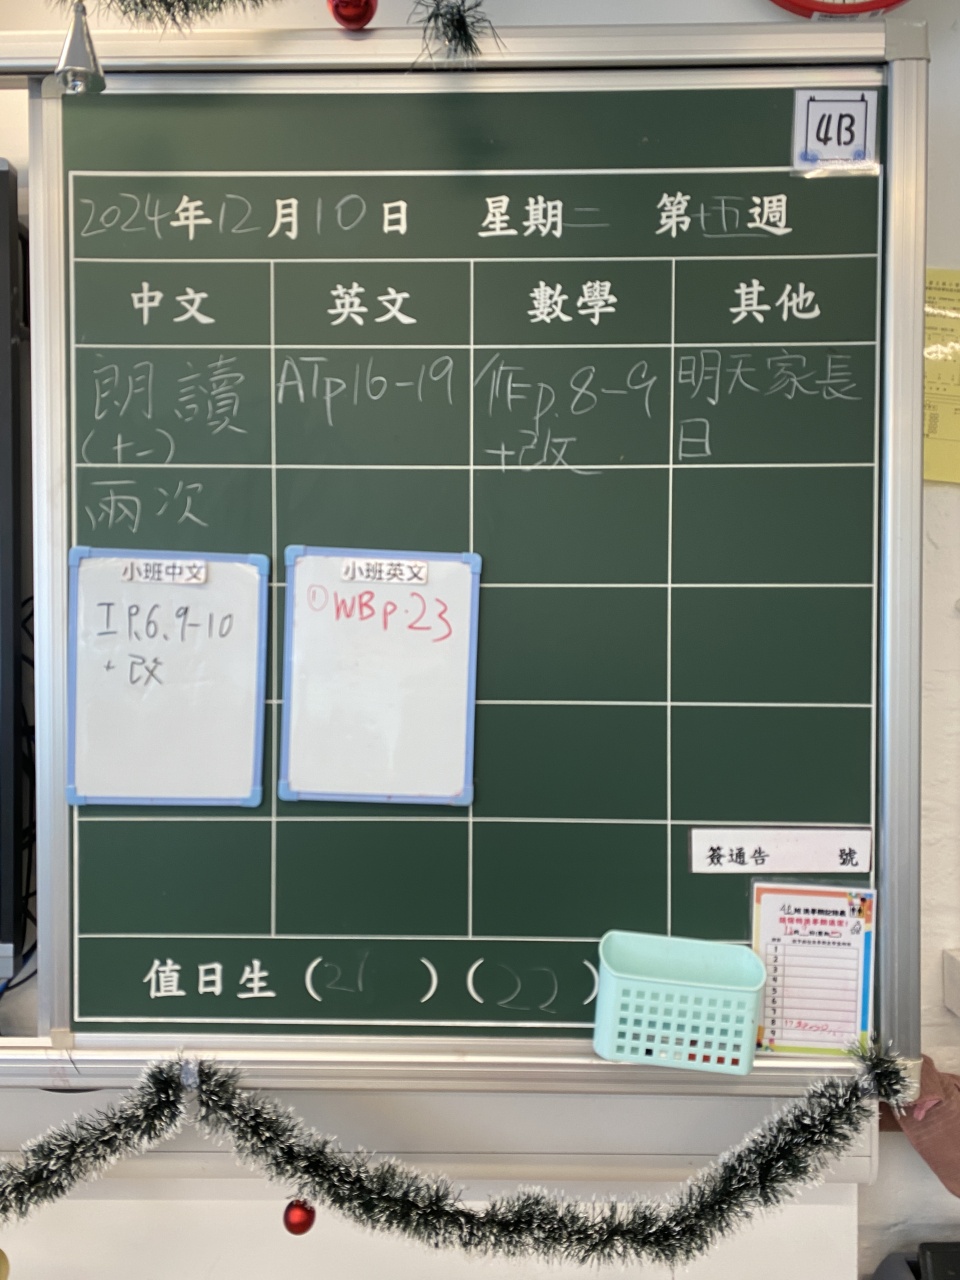 4B
2024年12月10日 星期二 第十五週
中文 英文 數學 其他
朗讀
(十一)
兩次
ATp16-19
作p.8-9
+改
明天家長
日
小班中文
工P.6、9-10
+改
小班英文
①WBp.23
簽通告 號
值日生(21)(22)
1
2
3
4
5
6
7
8
9